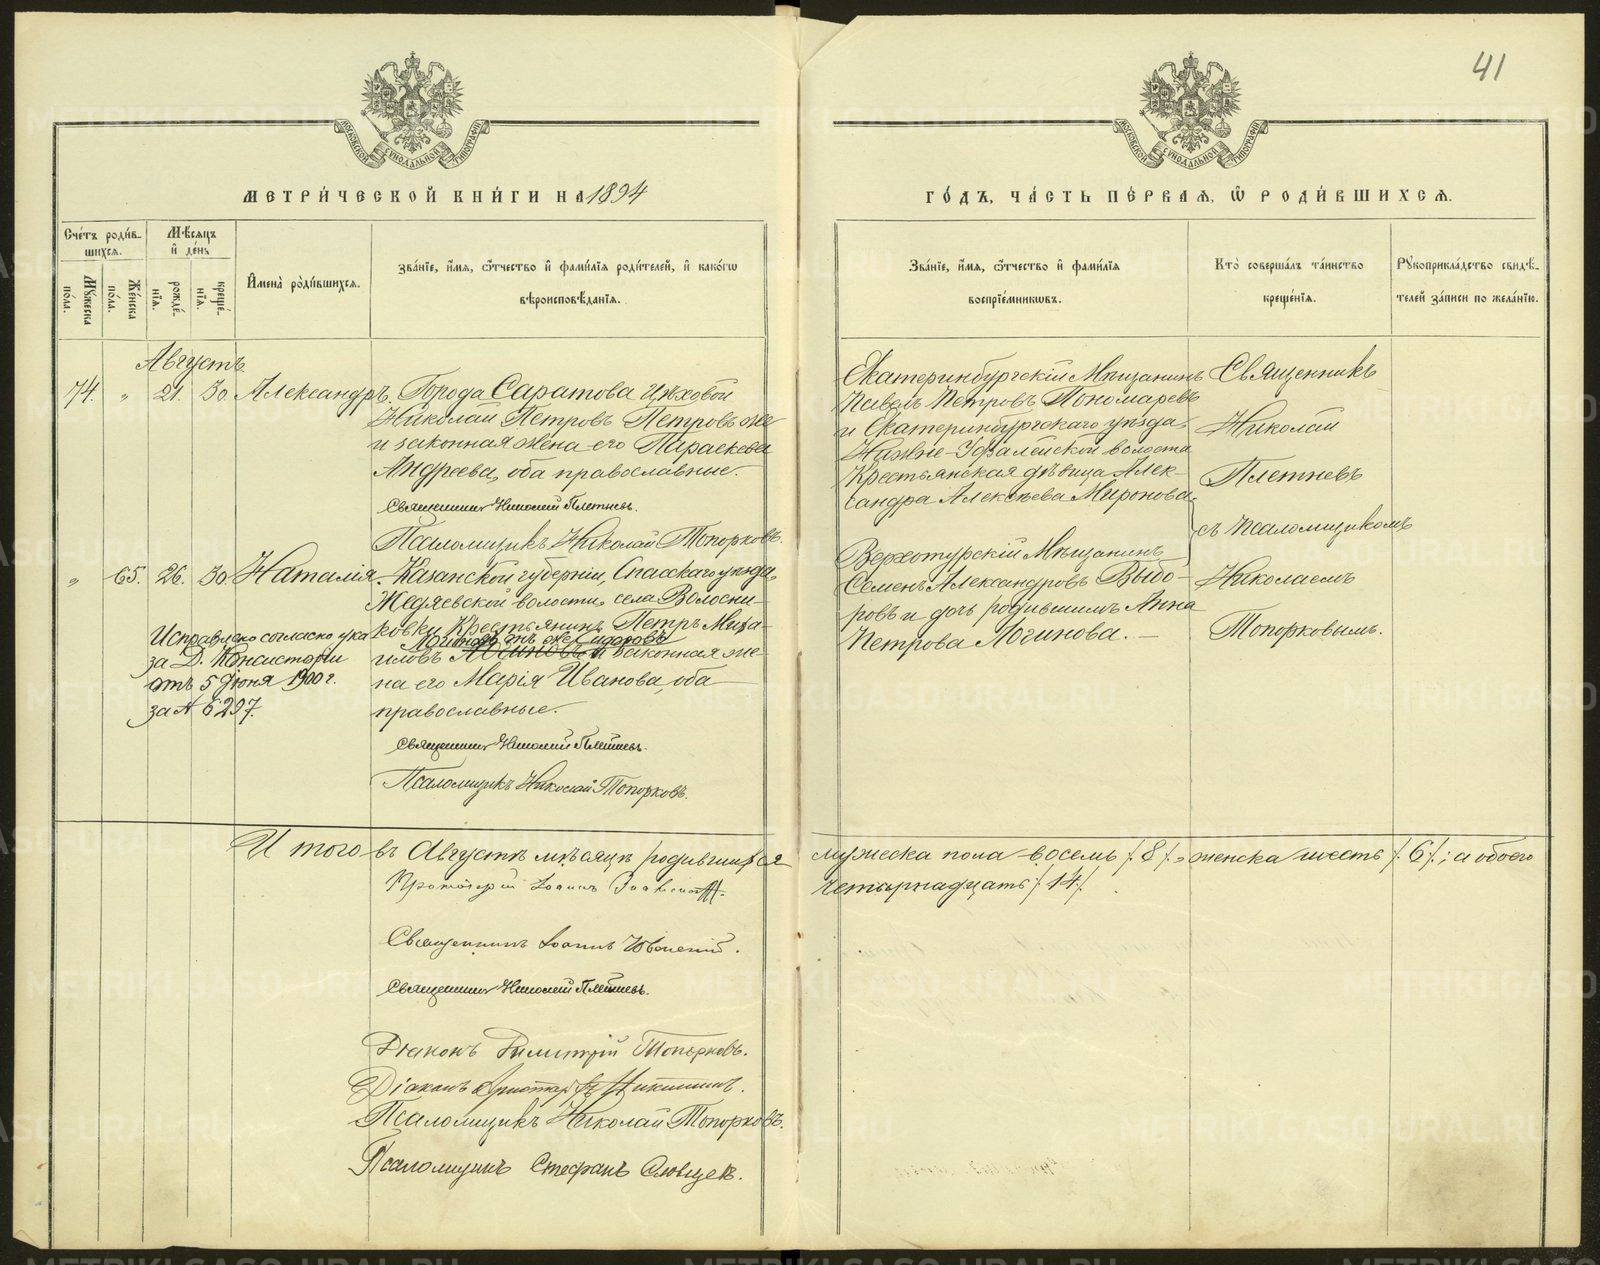 41
МОСКОВСКОЙ СѴНОДАЛЬНОЙ ТИПОГРАФІИ
МОСКОВСКОЙ СѴНОДАЛЬНОЙ ТИПОГРАФІИ
МЕТРИ́ЧЕСКОЙ КНИ́ГИ НА 1894
ГО́ДЪ, ЧА́СТЬ ПЕ́РВАЯ, Ѡ РОДИ́ВШИХСЯ.
Сче́тъ роди́в-
шихся.
Мѣ́сяцъ
и҆ де́нь
Му́жеска
по́ла.
Же́нска
по́ла.
рожде́-
нїя.
креще́-
нїя.
И҆мена̀ роди́вшихся.
Зва́нїе, и҆́мя, ѻ҆́тчество и҆ фами́лїя роди́телей, и҆ како́гѡ
вѣроисповѣ́данїя.
Зва́нїе, и҆́мя, ѻ҆́тчество и҆ фами́лїя
воспрїе́мникѡвъ.
Кто̀ соверша́лъ та́инство
креще́нїя.
Рꙋкоприкла́дство свидѣ́-
телей за́писи по жела́нїю.
Августъ
74. „ 21. 30. Александръ. Города Саратова Цѣховой
Николай Петровъ Петровъ же
и законная жена его Параскева
Андреева, оба православные.
Священникъ Николай Плетневъ.
Псаломщикъ Николай Топорковъ.
Екатеринбургскій Мѣщанинъ
Павелъ Петровъ Пономаревъ
и Екатеринбургскаго уѣзда,
Нижне-Уфалейской волости
Крестьянская дѣвица Алек-
сандра Алексѣева Миронова.
Священникъ
Николай
Плетневъ
съ Псаломщикомъ
Николаемъ
Топорковымъ.
„ 65. 26. 30. Наталія. Казанской губерніи, Спасскаго уѣзда,
Жедяевской волости, села Волосни-
ковки Крестьянинъ Петръ Миха-
Логиновъ онъ же Сидоровъ
иловъ и законная же-
на его Марія Иванова, оба
православные.
Священникъ Николай Плетневъ.
Псаломщикъ Николай Топорковъ.
Исправлено согласно ука
за Д. Консисторіи
отъ 5 Іюня 1900 г.
за № 6297.
Верхотурскій Мѣщанинъ
Семенъ Александровъ Выбо-
ровъ и дочь родившимъ Анна
Петрова Логинова.
Итого въ Августѣ мѣсяцѣ родившихся
мужеска пола восемь /8/, женска шесть /6/; а обоего
четырнадцать /14/.
Протоіерей Іоаннъ
Священникъ Іоаннъ
Священникъ Николай Плетневъ.
Діаконъ Димитрій Топорковъ.
Діаконъ Никитинъ.
Псаломщикъ Николай Топорковъ.
Псаломщикъ Стефанъ Словцевъ.
METRIKI.GASO-URAL.RU